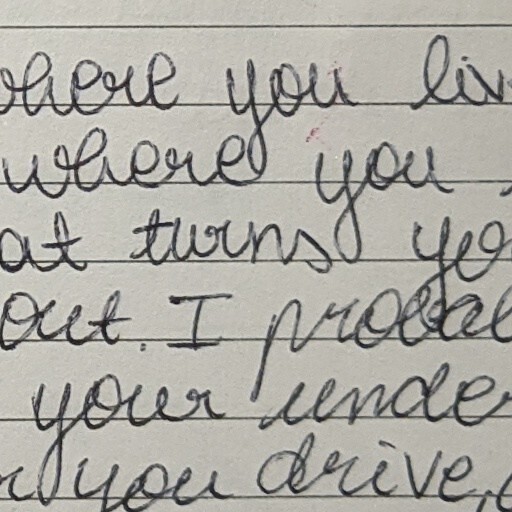 where you liv
where you
at turns yo
out. I probab
your unde
you drive,